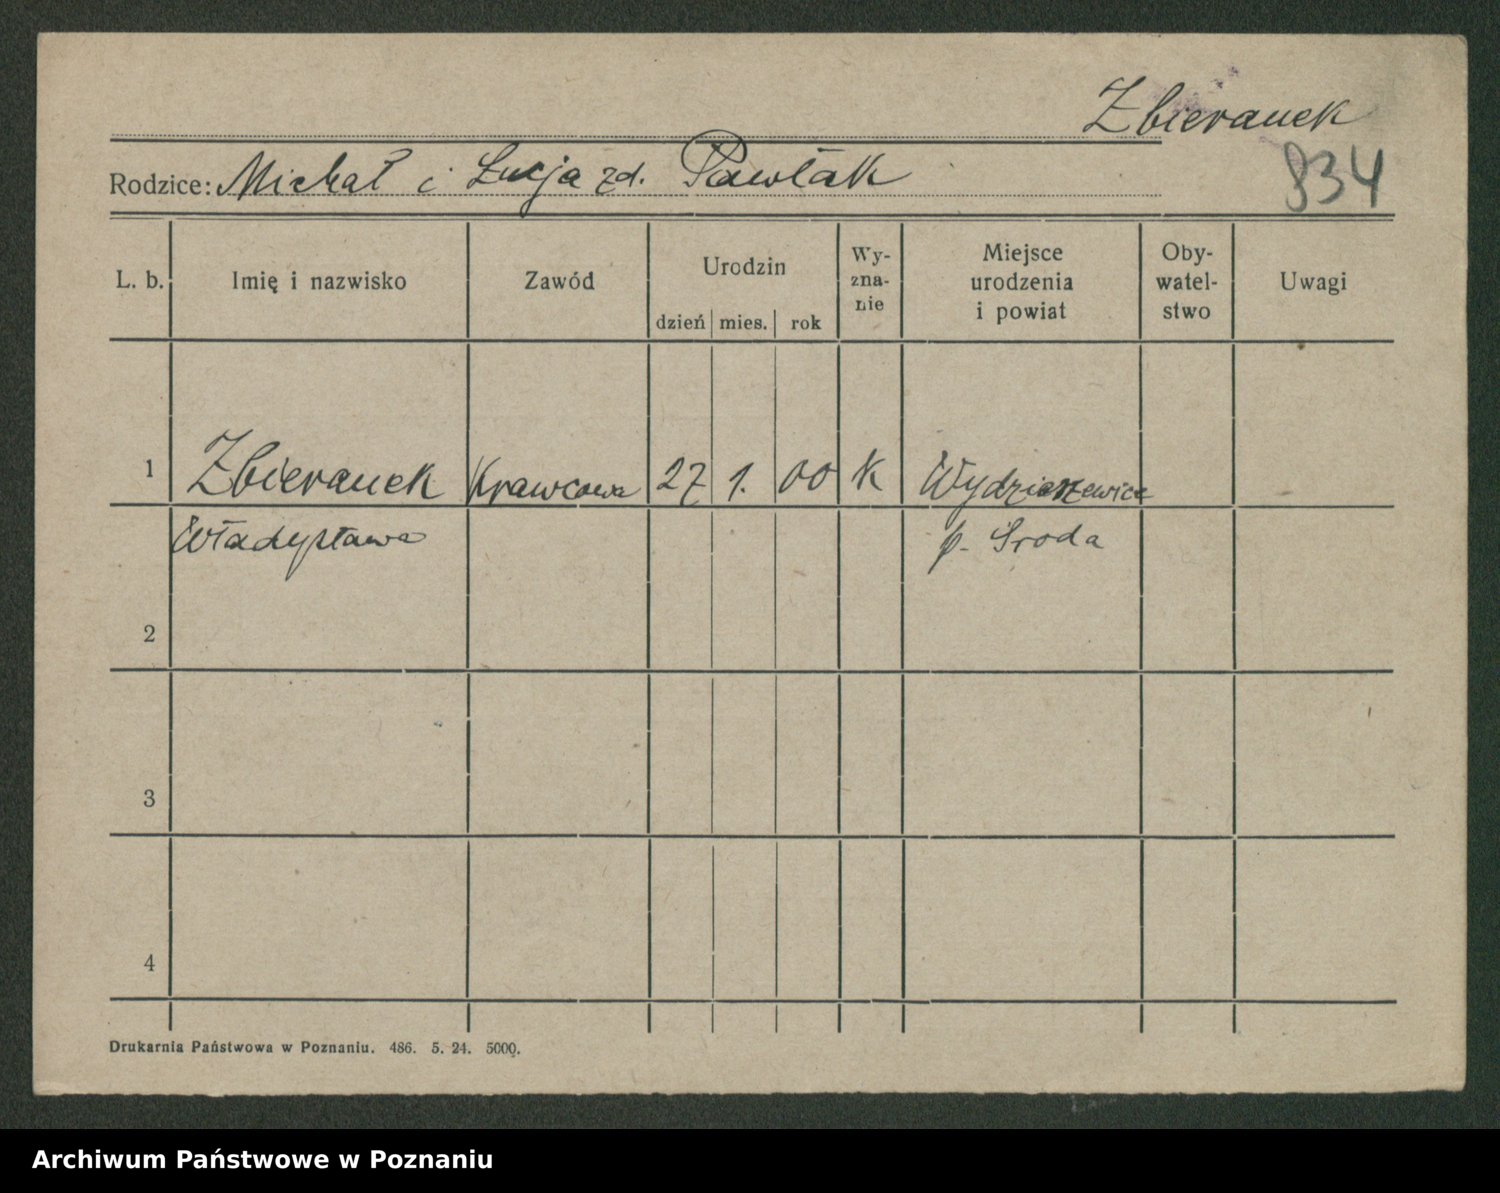 Zbieranek
834
Rodzice: Michał i Łucja zd. Pawlak
L. b. Imię i nazwisko Zawód Urodzin dzień mies. rok Wy-zna-nie Miejsce urodzenia i powiat Oby-watel-stwo Uwagi
1 Zbieranek Krawcowa 27 1. 00 K Wydzierzewice
Władysława p. Środa
2
3
4
Drukarnia Państwowa w Poznaniu. 486. 5. 24. 5000.
Archiwum Państwowe w Poznaniu